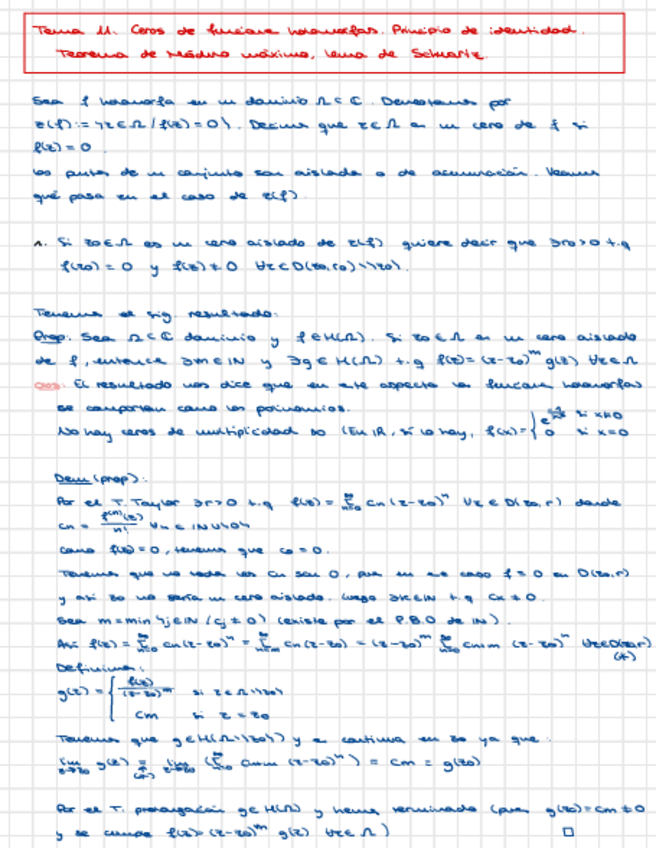 Tema 11. Ceros de funciones holomorfas. Principio de identidad.
Teorema de Módulo máximo, lema de Schwarz.
Sea f holomorfa en un dominio Ω ⊂ ℂ. Denotamos por
z(f) := {z∈Ω / f(z) = 0}. Decimos que z∈Ω es un cero de f si
f(z) = 0
Los puntos de un conjunto son aislados o de acumulación. Veamos
qué pasa en el caso de z(f).
1. Si z0∈Ω es un cero aislado de z(f) quiere decir que ∃r0>0 t.q
f(z0) = 0 y f(z) ≠ 0 ∀z∈D(z0,r0)\{z0}.
Tenemos el sig resultado:
Prop. Sea Ω⊂ℂ dominio y f∈H(Ω). Si z0∈Ω es un cero aislado
de f, entonces ∃m∈ℕ y ∃g∈H(Ω) t.q f(z) = (z-z0)^m g(z) ∀z∈Ω
Obs: El resultado nos dice que en este aspecto las funciones holomorfas
se comportan como los polinomios.
No hay ceros de multiplicidad ∞ (En ℝ, sí lo hay, f(x) = { si x≠0
0 si x=0
Dem (prop):
Por el T. Taylor ∃r>0 t.q f(z) = Σ cn(z-z0)^n ∀z∈D(z0,r) donde
cn = ∀n∈ℕ∪{0}
como f(z0) = 0, tenemos que c0 = 0.
Tenemos que no todos los cn son 0, pues en ese caso f ≡ 0 en D(z0,r)
y así z0 no sería un cero aislado. Luego ∃k∈ℕ t.q ck ≠ 0.
Sea m = min {j∈ℕ / cj ≠ 0} (existe por el P.B.O de ℕ).
Así f(z) = Σ cn(z-z0)^n = Σ cn(z-z0) = (z-z0)^m Σ cn+m (z-z0)^n ∀z∈D(z0,r)
(*)
Definimos:
g(z) = { f(z)/(z-z0)^m si z∈Ω\{z0}
cm si z = z0
Tenemos que g∈H(Ω\{z0}) y es continua en z0 ya que:
lim g(z) = lim (Σ cn+m (z-z0)^n) = cm = g(z0)
(*)
Por el T. prolongación g∈H(Ω) y hemos terminado (pues g(z0)=cm≠0
y se cumple f(z) = (z-z0)^m g(z) ∀z∈Ω) □